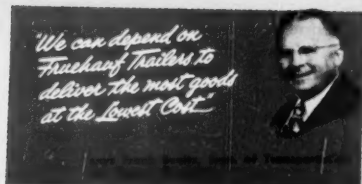 "We can depend on
Fruehauf Trailers to
deliver the most goods
at the Lowest Cost"